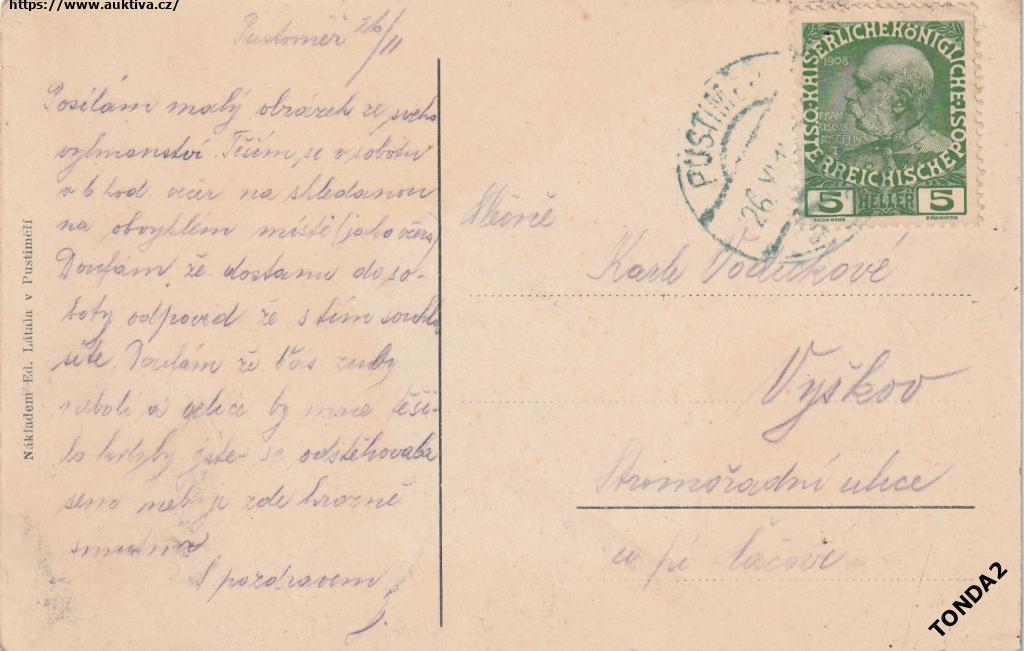 https://www.auktiva.cz/
Pustoměř 26/11
Posílám malý obrázek ze svého
vyhnanství. Těším se v sobotu
v 6 hod večer na shledanou
na obvyklém místě (jako včera)
Doufám že dostanu do so-
boty odpověd že s tím souhla
síte. Doufám že Vás zuby
nebolí a velice by mne těši-
lo kdyby jste se odstěhovala
sem neb je zde hrozně
smutno
S pozdravem
J.
Nákladem Ed. Látala v Pustiměři
PUSTIM
26. VI 11
KAISERLICHE KÖNIGLICHE
ÖSTERREICHISCHE POST
1908
FRAN
CISCUS
IOSEPHUS
I
5 HELLER 5
Slečně
Karle Vodičkové
Vyškov
Stromořadní ulice
u pí
TONDA2